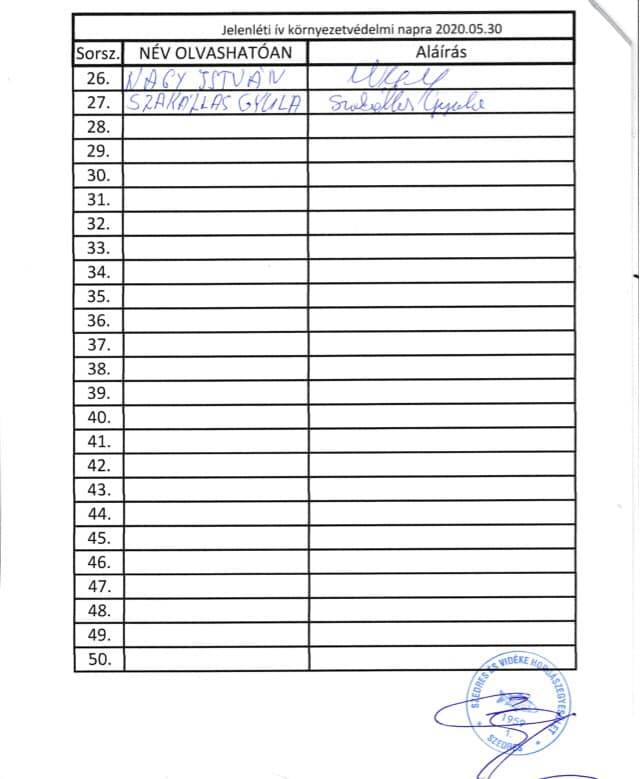 Jelenléti ív környezetvédelmi napra 2020.05.30
Sorsz. NÉV OLVASHATÓAN Aláírás
26. NAGY ISTVÁN
27. SZAKÁLLAS GYULA Szakállas Gyula
28.
29.
30.
31.
32.
33.
34.
35.
36.
37.
38.
39.
40.
41.
42.
43.
44.
45.
46.
47.
48.
49.
50.
SZEDRES ÉS VIDÉKE HORGÁSZEGYESÜLET
1959
1.
SZEDRES